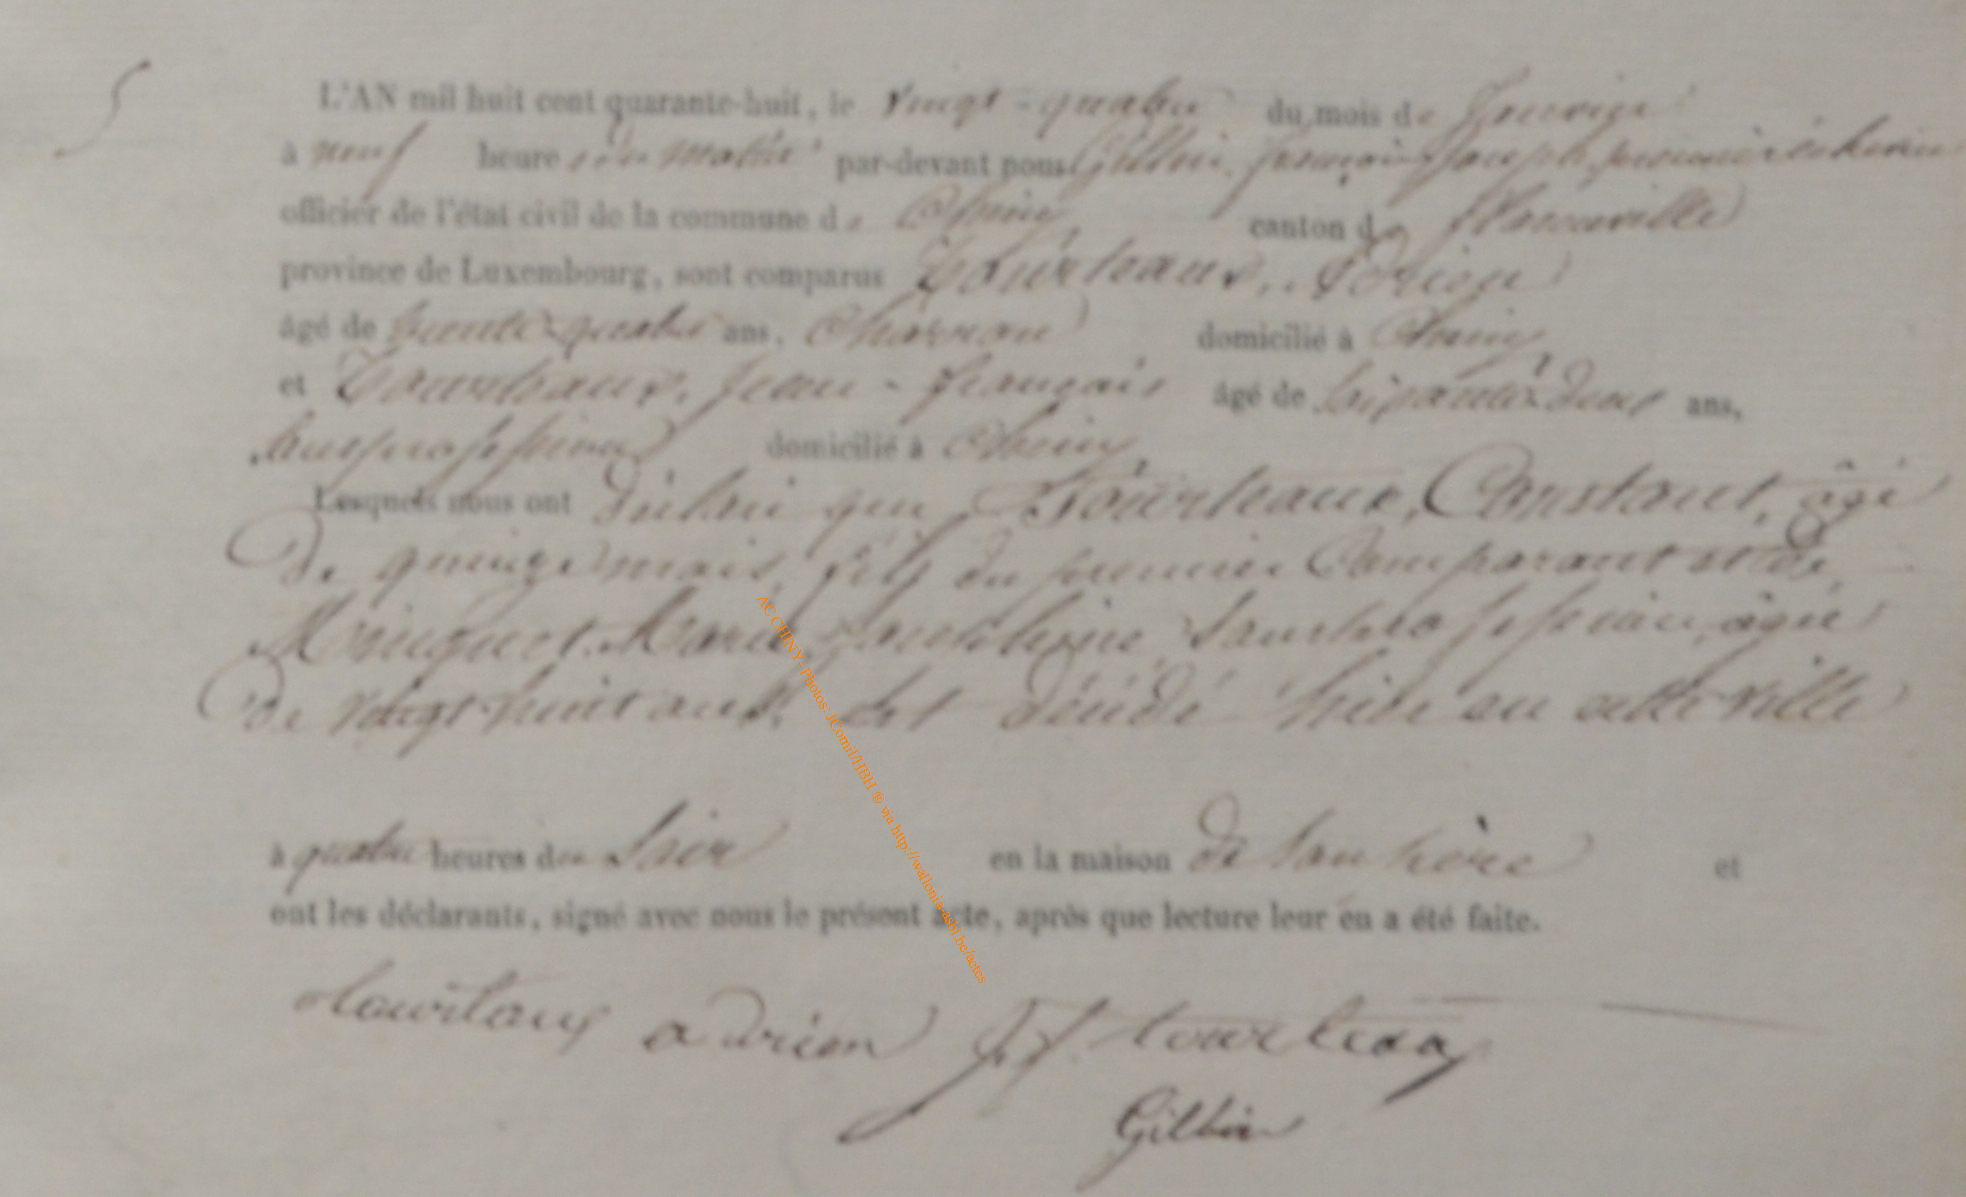 5
L'AN mil huit cent quarante-huit, le vingt-quatre du mois de Janvier
à neuf heures du matin par-devant nous Gillin, françois Joseph, premier échevin
officier de l'état civil de la commune de Chiny canton de Florenville
province de Luxembourg, sont comparus Tourteaux, Adrien
âgé de trente quatre ans, Charron domicilié à Chiny
et Tourteaux, Jean-françois âgé de soixante deux ans,
sans profession domicilié à Chiny
Lesquels nous ont déclaré que Tourteaux, Constant, âgé
de quinze mois, fils du premier Comparant et de
Marie sans profession, âgée
de vingt-huit ans, est décédé hier en cette ville
à quatre heures du soir en la maison de son père et
ont les déclarants, signé avec nous le présent acte, après que lecture leur en a été faite.
tourtaux adrien J.f. tourteaux
Gillin
AC CHINY-Photos: JCornil/HBH ® via http://wallonia-asbl.be/actes